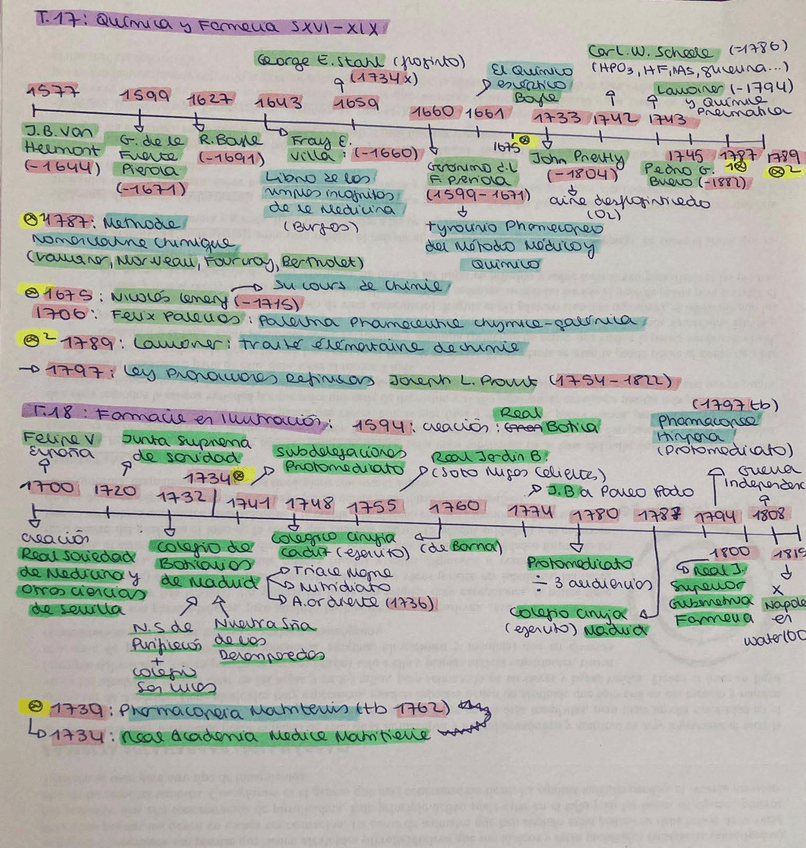 T.17: Química y Farmacia SXVI-XIX
George E. Stahl (flogisto)
(1734x)
El Químico
escéptico
Boyle
Carl. W. Scheele (-1786)
(HPO3, HF, HAS, glicerina...)
Lavoisier (-1794)
y Química
Pneumática
1577
1599
1627
1643
1659
1660
1661
1675
1733
1742
1743
1745
1787
1789
2
J.B. Van
Helmont
(-1644)
G. de la
Fuente
Pierola
(-1671)
R. Boyle
(-1691)
Fray E.
Villa: (-1660)
Libro de los
simples incógnitos
de la Medicina
(Burgos)
Gerónimo d.l
F. Pierola
(1599-1671)
tyrocinio Pharmacopeo
del Método Médico y
Químico
John Priestly
(-1804)
aire desflogisticado
(O2)
Pedro G.
Bueno (-1882)
1787: Methode
nomenclature chimique
(Lavoisier, Morveau, Fourcroy, Bertholet)
1675: Nicolás Lemery (-1715) → Su cours de Chimie
1706: Felix Palacios: Palestra Pharmaceutica chymico-galénica
2 1789: Lavoisier: traité élémentaire de chimie
→ 1797: Ley Proporciones Definidas Joseph L. Proust (1754-1822)
T.18: Farmacia en Ilustración: 1594: creación: Real Botica
(1797 tb)
Pharmacopea
Hispana
(Protomedicato)
Guerra
Independencia
Felipe V
España
Junta Suprema
de Sanidad
Subdelegaciones
Protomedicato
Real Jardín B.
(Soto Migas Calientes)
J.B a Paseo Prado
1700
1720
1732
1734
1741
1748
1755
1760
1774
1780
1787
1794
1800
1808
1815
creación
Real Sociedad
de Medicina y
otras ciencias
de Sevilla
colegio de
Boticarios
de Madrid
N.S de
Purificación
+
colegio
San Lucas
Nuestra Sña
de los
Desamparados
Colegio cirujía
Cádiz (ejército)
(de Barna)
Triaca Magna
Mitridato
A. ardiente (1736)
Protomedicato
÷ 3 audiencias
Colegio cirujía
(ejército) Madrid
Real J.
Superior
Gubernativa
Farmacia
x
Napoleón
en
Waterloo
1739: Pharmacopea Matritensis (tb 1762)
1734: Real Academia Médica Matritense